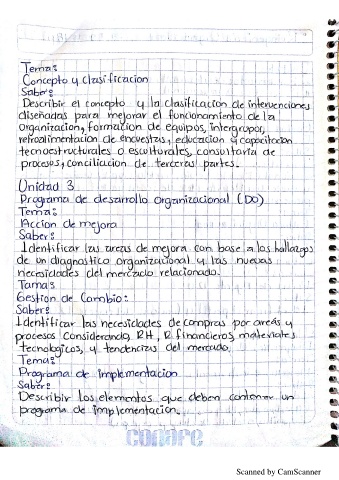 Tema:
Concepto y clasificacion
Saber:
Describir el concepto y la clasificacion de intervenciones
diseñadas para mejorar el funcionamiento de la
organizacion, formacion de equipos, intergrupo,
retroalimentacion de encuestas, educacion y capacitacion
tecnoestructurales o esculturales, consultoria de
procesos, conciliacion de terceras partes.
Unidad 3
Programa de desarrollo Organizacional (DO)
Tema:
Accion de mejora
Saber:
Identificar las areas de mejora con base a los hallazgos
de un diagnostico organizacional y las nuevas
necesidades del mercado relacionado.
Tama:
Gestion de Cambio:
Saber:
Identificar las necesidades de compras por areas y
procesos Considerando, RH, R. financieros, materiales
tecnologicos, y tendencias del mercado.
Tema:
Programa de implementacion
Saber:
Describir los elementos que deben contener un
programa de implementacion.
conafe
Scanned by CamScanner